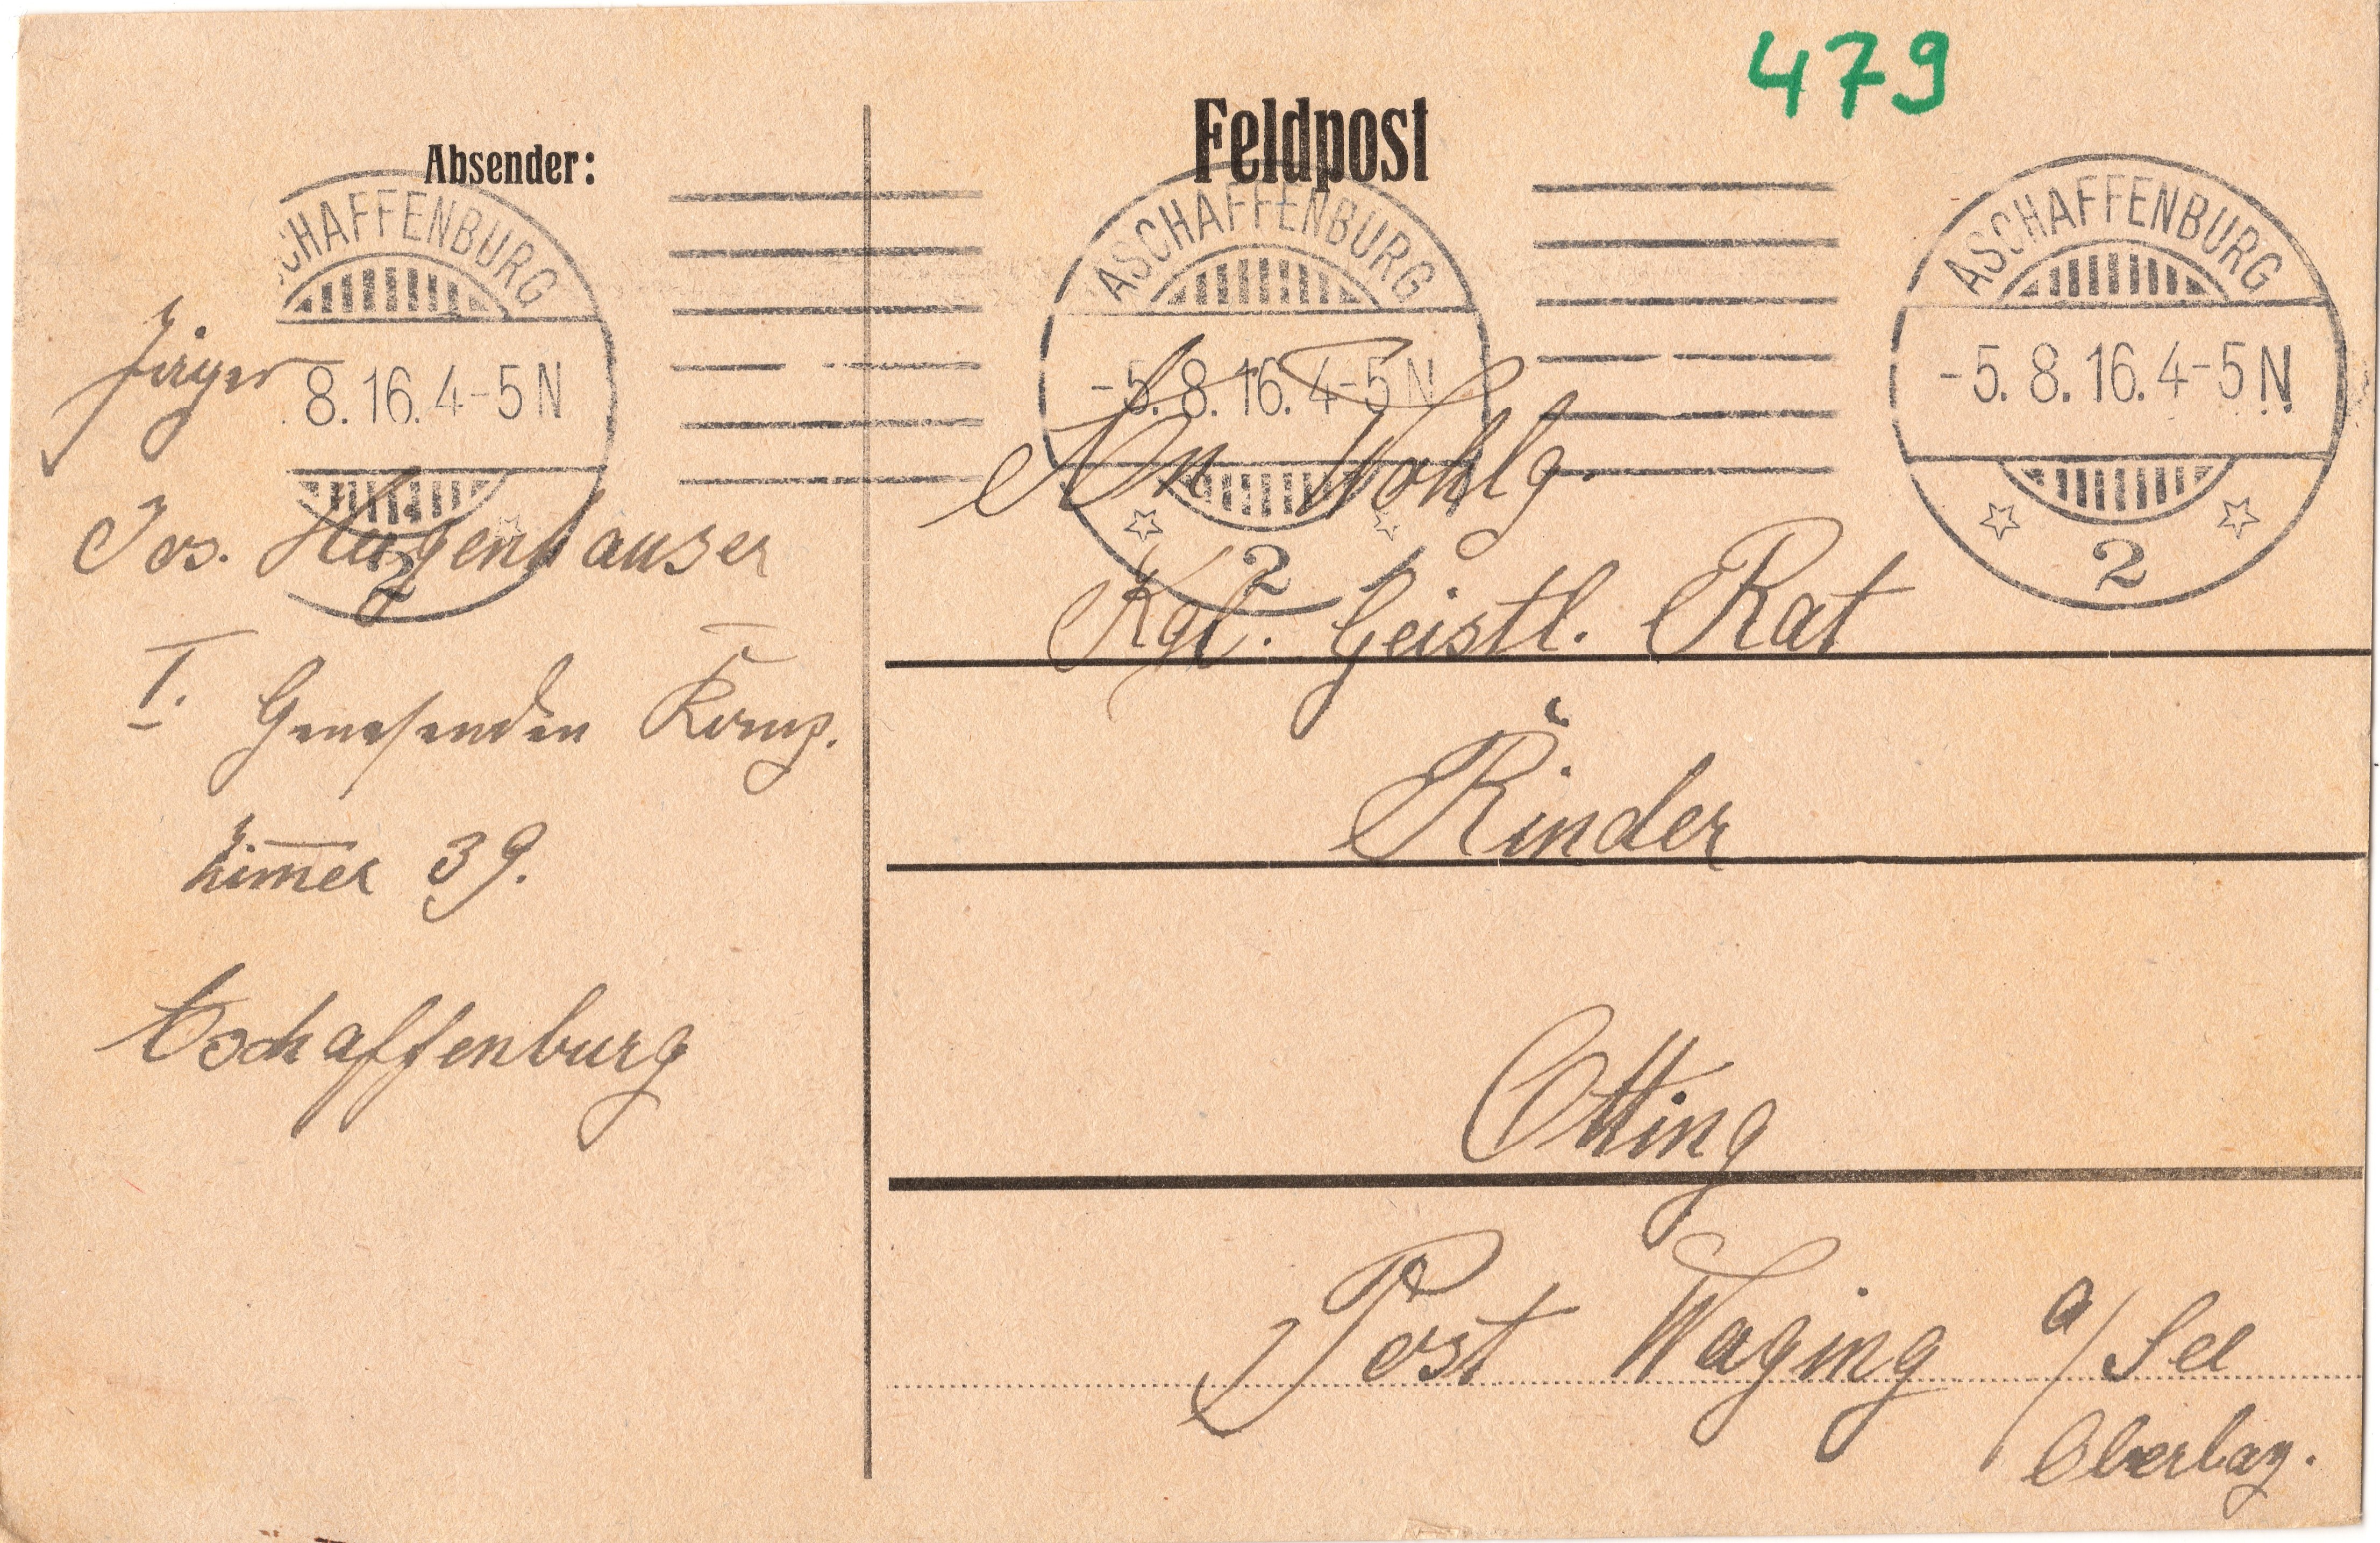 479
Feldpost
Absender:
ASCHAFFENBURG
-5. 8. 16. 4-5 N
2
ASCHAFFENBURG
-5. 8. 16. 4-5 N
2
SCHAFFENBURG
8. 16. 4-5 N
2
Jäger
Jos. Hugenhauser
I. Genesenden Komp.
Zimmer 39.
Aschaffenburg
An Wohlg.
Kgl. Geistl. Rat
Rinder
Otting
Post Waging a/See
Oberbay.